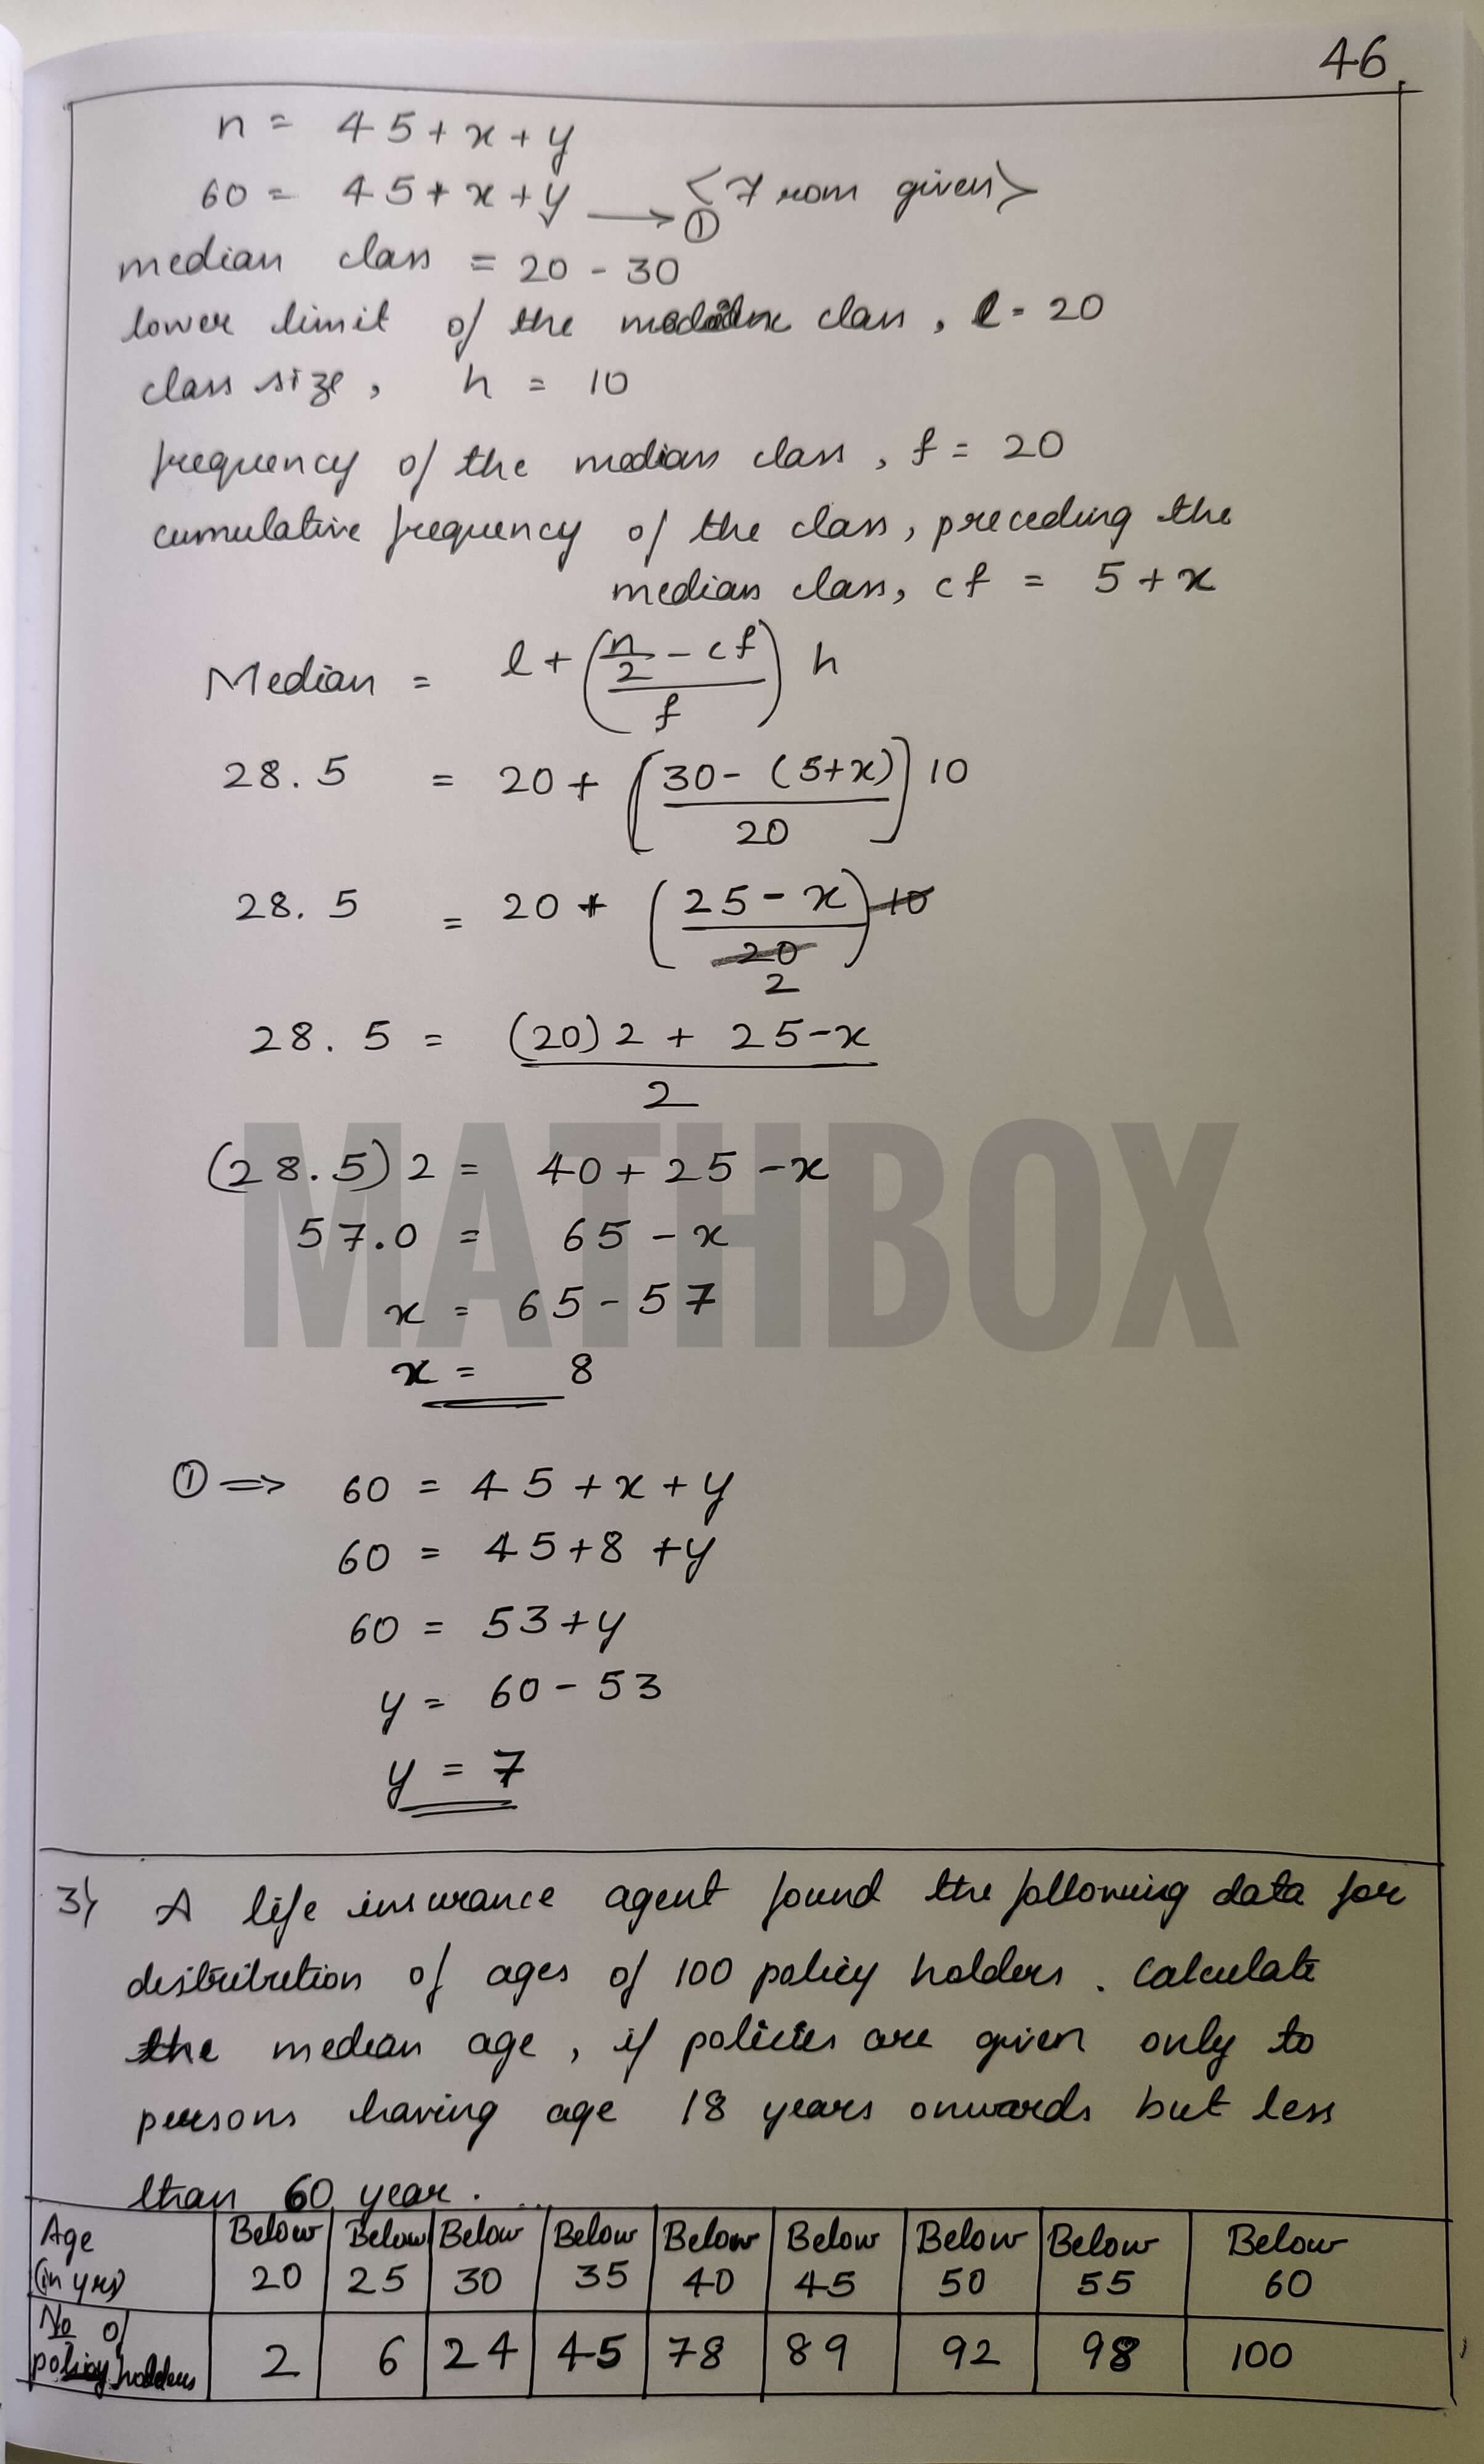 46
n = 45+x+y
60 = 45+x+y → ① <From given>
median class = 20 - 30
lower limit of the class, l = 20
class size, h = 10
frequency of the median class, f = 20
cumulative frequency of the class, preceding the
median class, cf = 5+x
Median = l + ((n/2 - cf)/f) h
28.5 = 20 + [(30 - (5+x))/20] 10
28.5 = 20 + ((25-x)/20) 10
2
28.5 = ((20)2 + 25-x)/2
(28.5)2 = 40+25-x
57.0 = 65-x
x = 65-57
x = 8
① ⇒ 60 = 45+x+y
60 = 45+8+y
60 = 53+y
y = 60-53
y = 7
3) A life insurance agent found the following data for
distribution of ages of 100 policy holders. Calculate
the median age, if policies are given only to
persons having age 18 years onwards but less
than 60 year. ...
Age (in yrs) Below 20 Below 25 Below 30 Below 35 Below 40 Below 45 Below 50 Below 55 Below 60
No of policy holders 2 6 24 45 78 89 92 98 100
MATHBOX